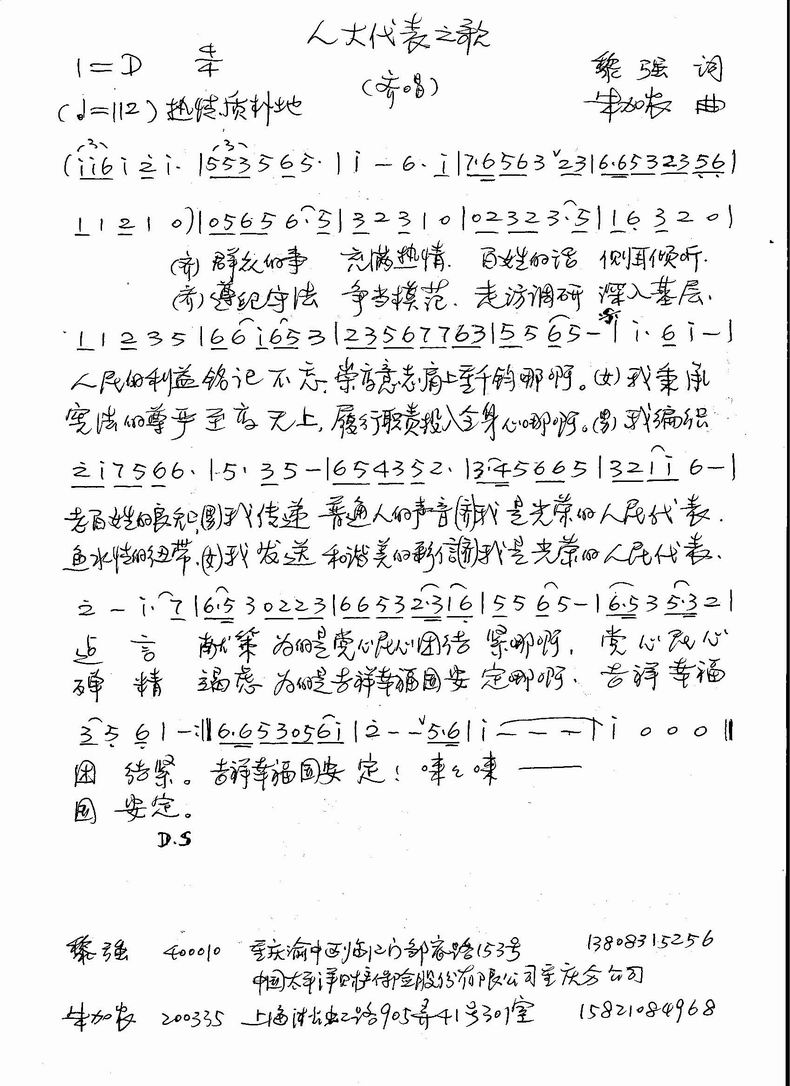 人大代表之歌
1=D 4/4
(齐唱)
黎强 词
(♩=112) 热情质朴地
朱加农 曲
(i i 6 i 2 i· | 5 5 3 5 6 5· | i - 6· i | 7·6 5 6 3 ˅2 3 | 6·6 5 3 2 3 5 6 |
1 1 2 1 0) | 0 5 6 5 6·5 | 3 2 3 1 0 | 0 2 3 2 3·5 | 1 6 3 2 0 |
(齐) 群众的事 充满热情. 百姓的话 侧耳倾听.
(齐) 遵纪守法 争当模范. 走访调研 深入基层.
1 1 2 3 5 | 6 6 i 6 5 3 | 2 3 5 6 7 7 6 3 | 5 5 6 5 - | i· 6 i - |
人民的利益铭记不忘, 崇高意志肩上重千钧哪啊。(女) 我秉承
宪法的尊严至高无上, 履行职责投入全身心哪啊。(男) 我编织
2 i 7 5 6 6· | ·5· 3 5 - | 6 5 4 3 5 2· | 3·4 5 6 6 5 | 3 2 i i 6 - |
老百姓的良知, (男) 我传递 普通人的声音 (齐) 我是光荣的人民代表.
鱼水情的纽带. (女) 我发送 和谐美的彩信 (齐) 我是光荣的人民代表.
2 - i· 7 | 6·5 3 0 2 2 3 | 6 6 5 3 2·3 1 6 | 5 5 6 5 - | 6·5 3 5·3 2 |
进言 献策 为的是党心民心团结 紧哪啊, 党心民心
殚精 竭虑 为的是吉祥幸福国安 定哪啊. 吉祥幸福
3 5 6 | 1 - :‖ 6·6 5 3 0 5 6 i | 2 - - ˅5·6 | i - - - | i 0 0 0 ‖
团 结紧。 吉祥幸福国安 定! 唻唻唻 ——
国 安定。
D.S
黎强 400010 重庆渝中区临江门邹容路153号 13808315256
中国太平洋财产保险股份有限公司重庆分公司
朱加农 200335 上海 虹路905弄41号301室 15821084968